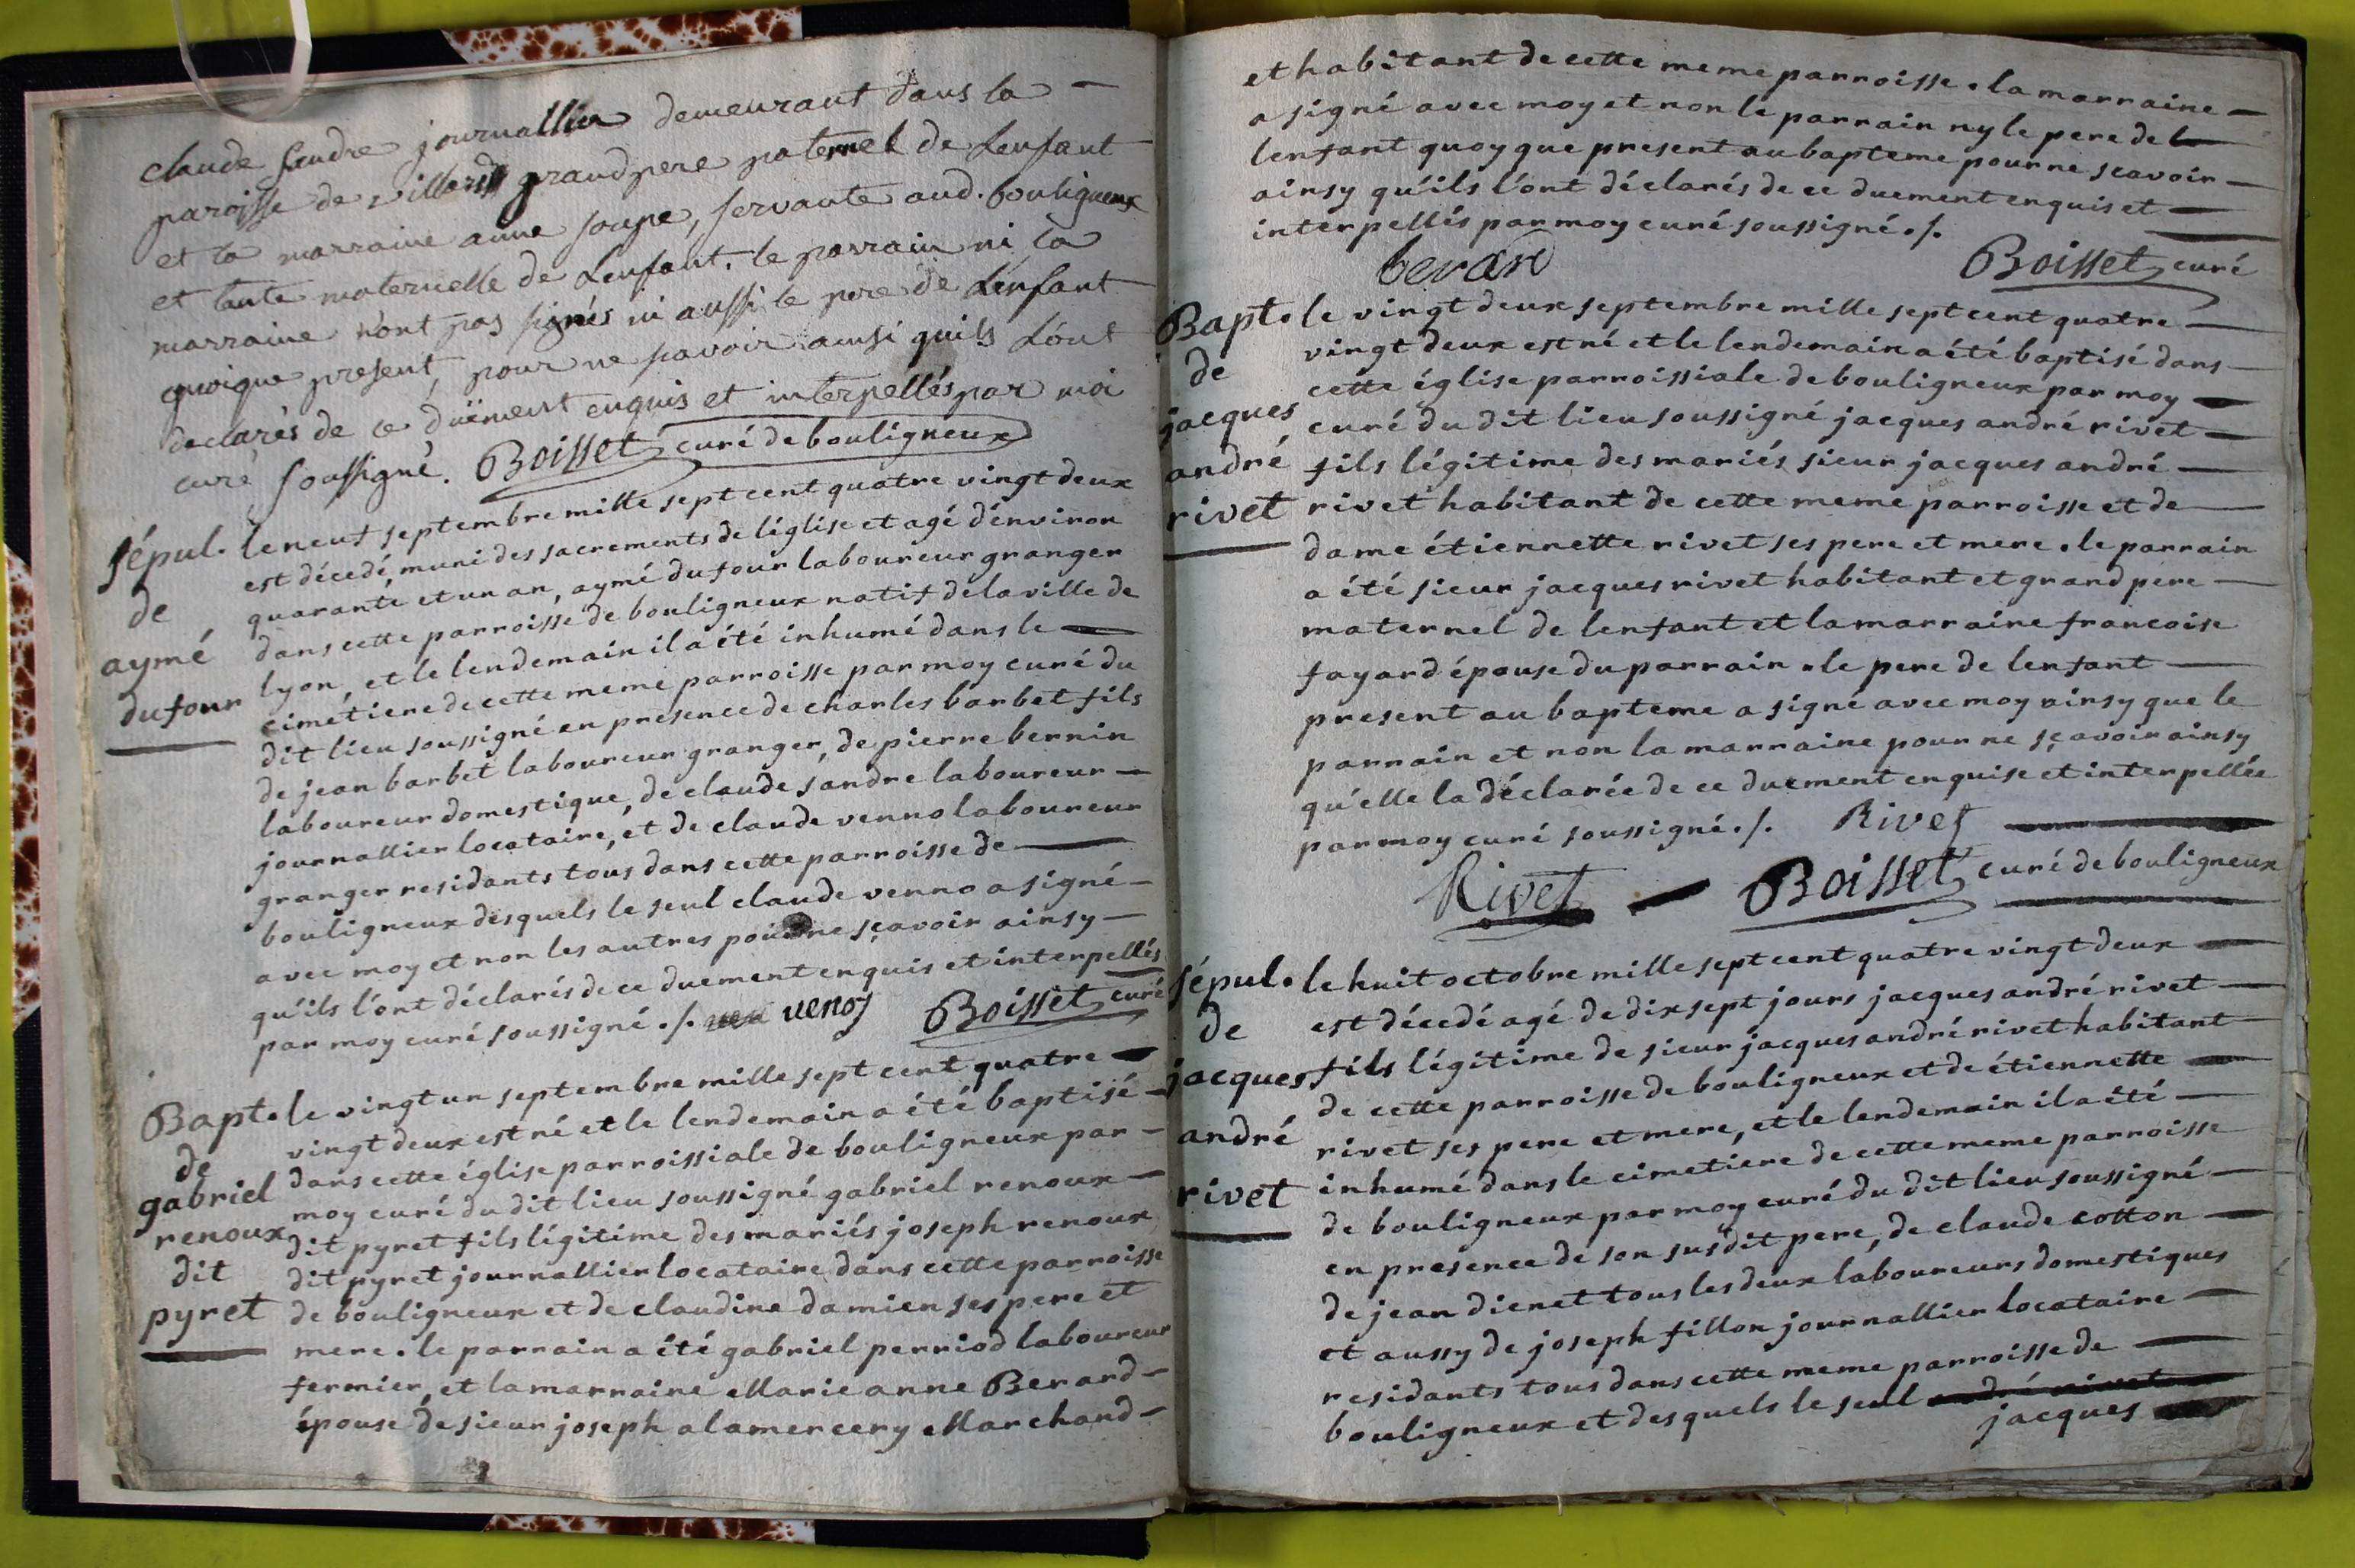 claude sandre journallier demeurant dans la
paroisse de villards grand pere paternel de Lenfant
et la marraine anne soupe, servante aud. bouligneux
et tante maternelle de Lenfant. le parrain ni la
marraine n'ont pas signés ni aussi le pere de Lenfant
quoique present, pour ne savoir ainsi quils L'ont
declarés de ce duëment enquis et interpellés par moi
curé soussigné. Boisset curé de bouligneux
sépul. le neuf septembre mille sept cent quatre vingt deux
est décedé, muni des sacrements de léglise et agé d'environ
de quarante et un an, aymé dufour laboureur granger
dans cette parroisse de bouligneux natif de la ville de
aymé lyon, et le lendemain il a été inhumé dans le
dufour cimétiere de cette meme parroisse par moy curé du
dit lieu soussigné en présence de charles barbet fils
de jean barbet laboureur granger, de pierre bernin
laboureur domestique, de claude sandre laboureur
journallier locataire, et de claude venno laboureur
granger residants tous dans cette parroisse de
bouligneux desquels le seul claude venno a signé
avec moy et non les autres pour ne sçavoir ainsy
qu'ils l'ont déclarés de ce duement enquis et interpellés
par moy curé soussigné ./. venoy Boisset curé
Bapt. le vingt un septembre mille sept cent quatre
vingt deux est né et le lendemain a été baptisé
de dans cette église parroissiale de bouligneux par
gabriel moy curé du dit lieu soussigné gabriel renoux
renoux dit pyret fils légitime des mariés joseph renoux
dit dit pyret journallier locataire dans cette parroisse
pyret de bouligneux et de claudine damien ses pere et
mere. le parrain a été gabriel perriod laboureur
fermier, et la marraine Marie anne Berard
épouse de sieur joseph alamercery Marchand
et habitant de cette meme parroisse. la marraine
a signé avec moy et non le parrain ny le pere de
lenfant quoy que present au bapteme pour ne scavoir
ainsy qu'ils l'ont déclarés de ce duement enquis et
interpellés par moy curé soussigné ./.
berard Boisset curé
Bapt. le vingt deux septembre mille sept cent quatre
vingt deux est né et le lendemain a été baptisé dans
de cette église parroissiale de bouligneux par moy
jacques curé du dit lieu soussigné jacques andré rivet
andré fils légitime des mariés sieur jacques andré
rivet rivet habitant de cette meme parroisse et de
dame étiennette rivet ses pere et mere. le parrain
a été sieur jacques rivet habitant et grand pere
maternel de lenfant et la marraine francoise
fayard épouse du parrain. le pere de lenfant
present au bapteme a signé avec moy ainsy que le
parrain et non la marraine pour ne sçavoir ainsy
qu'elle la déclarée de ce duement enquise et interpellée
par moy curé soussigné ./. Rivet
Rivet Boisset curé de bouligneux
sépul. le huit octobre mille sept cent quatre vingt deux
de est décedé agé de dix sept jours jacques andré rivet
jacques fils légitime de sieur jacques andré rivet habitant
de cette parroisse de bouligneux et de étiennette
andré rivet ses pere et mere, et le lendemain il a été
rivet inhumé dans le cimetiere de cette meme parroisse
de bouligneux par moy curé du dit lieu soussigné
en presence de son susdit pere, de claude cotton
de jean dienet tous les deux laboureurs domestiques
et aussy de joseph fillon journallier locataire
residants tous dans cette meme parroisse de
bouligneux et desquels le seul andré rivet
jacques